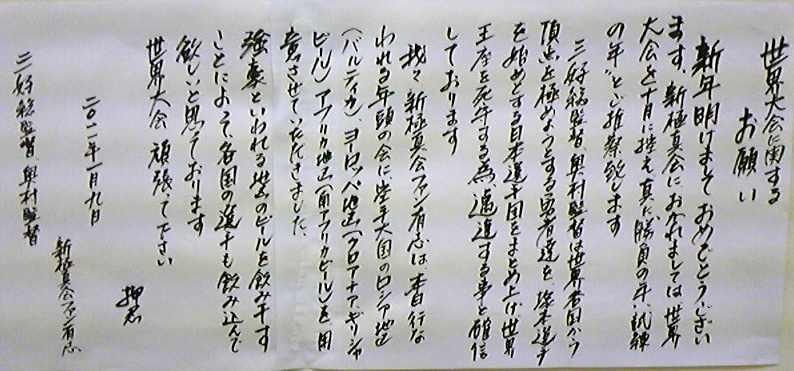 世界大会に関する
お願い
新年明けましておめでとうござい
ます。新極真会におかれましては世界
大会を十月に控え真に勝負の年、試練
の年”と推察致します
三好総監督、奥村監督は世界各国から
頂点を極めようとする勇者達を、塚本選手
を始めとする日本選手団をまとめ上げ、世界
王座を死守する為、邁進する事と確信
しております
我々新極真会ファン有志は、本日行な
われる年頭の会に空手大国のロシア地区
(バルティカ)、ヨーロッパ地区(クロアチア、ギリシャ
ビール)アフリカ地区(南アフリカビール)を用
意させていただきました、
強豪といわれる地区のビールを飲み干す
ことによって、各国の選手も飲み込んで
欲しいと思っております
世界大会 頑張って下さい
押忍
二〇一一年一月九日
新極真会ファン有志
三好総監督、奥村監督